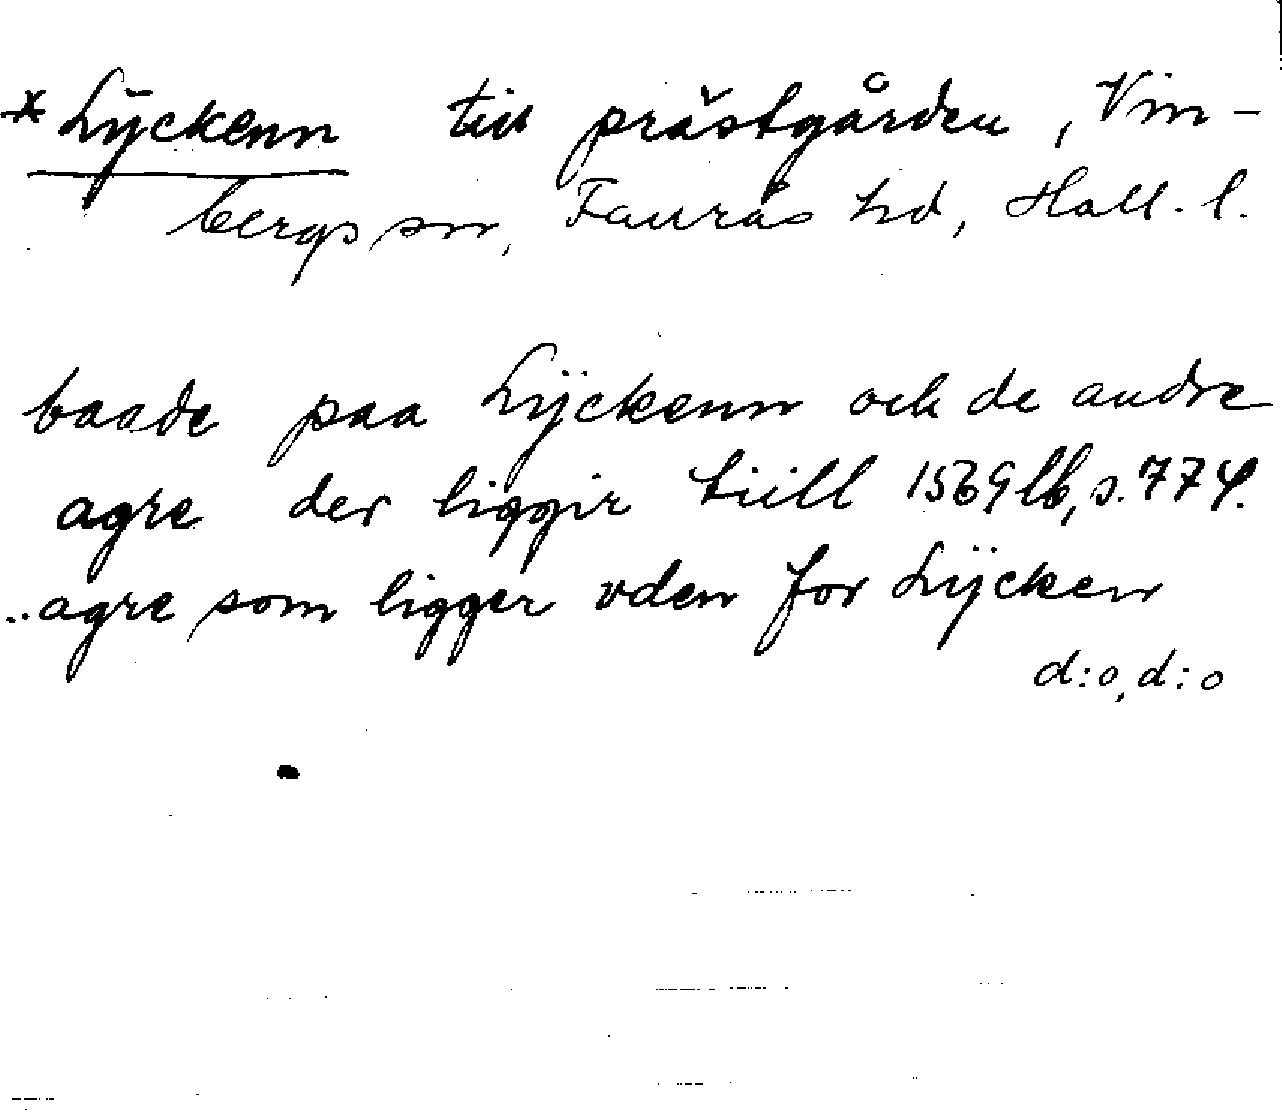 * Lÿckenn till prästgården, Vin-
bergs sn, Faurås hd, Hall. l.
baade paa Lÿckenn och de andre
agre der liggir tiill 1569 lb, s. 774.
..agre som ligger vden for Lÿcken
d:o, d:o